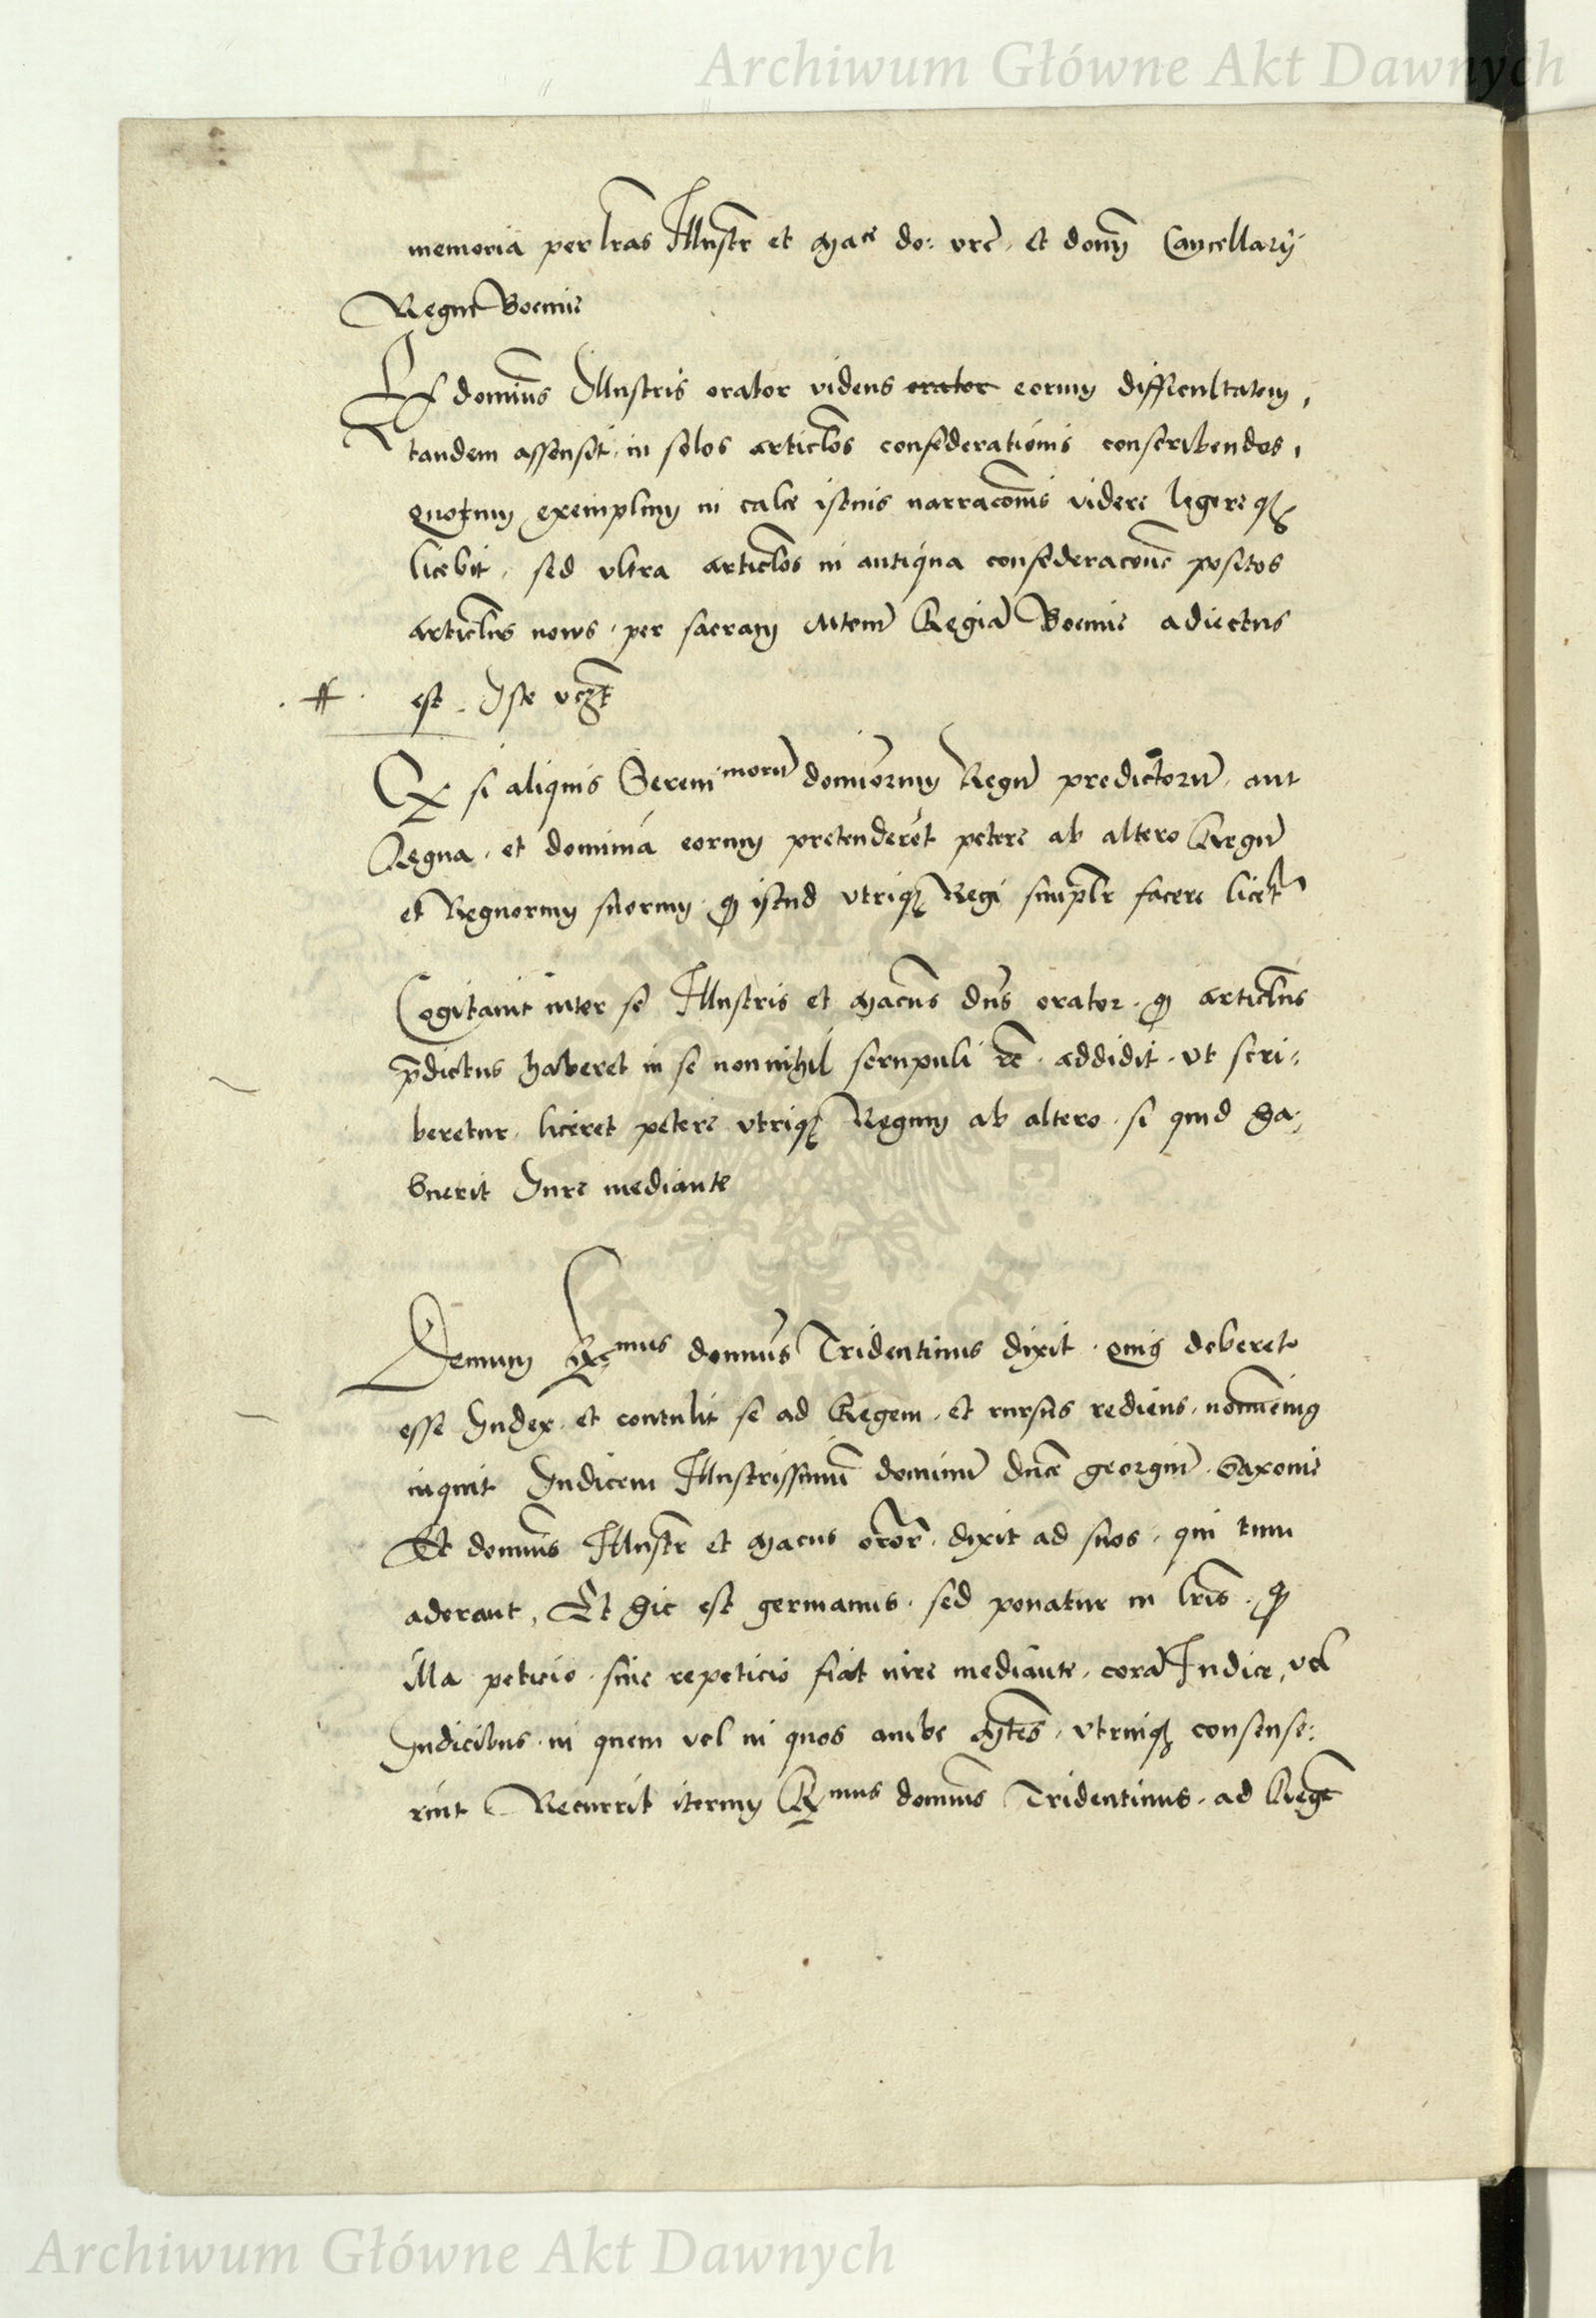 Archiwum Główne Akt Dawnych
memoria per lras Illustr et Mace do: vre, et domī Cancellarij
Regni Boemie
Et dominus Illustris orator videns orator eorum difficultatem,
tandem assensit, in solos articlos confederationis conscribendos,
quorum exemplum in calce istius narracōnis videre legere qȝ
licebit, sed vltra articlos in antiqua confederacōne positos
articlus novus, per sacram Mtem Regiā Boemie adiectus
est. Iste vczt
Qȝ si aliquis Serenimorū dominorum Regū predictorū, aut
Regna, et dominia eorum pretenderēt petere ab altero Regū
et Regnorum suorum, ꝙ istud vtriqȝ Regi simplr facere licet
Cogitavit inter se Illustris et Macus dns orator, ꝙ articlus
p̄dictus haberet in se nonnihil scrupuli &c, addidit, vt scri=
beretur, liceret petere vtriqȝ Regum ab altero, si quid ha=
buerit Iure mediante
Demum Rmus dominus Tridentinus dixit, quis deberet
esse Iudex, et contulit se ad Regem, et rursus rediens, nominemus
inquit Iudicem Illustrissimū dominū ducē georgiū Saxonie
Et dominus Illustr et Macus oror, dixit ad suos, qui tum
aderant, Et hic est germanus, sed ponatur in lris, ꝙ
illa peticio, sive repeticio fiat iure mediante, corā Iudice, vel
Iudicibus, in quem vel in quos ambe Mtes, vtriusqȝ consense:
rint Recurrit iterum Rmus dominus Tridentinus, ad Regē
Archiwum Główne Akt Dawnych